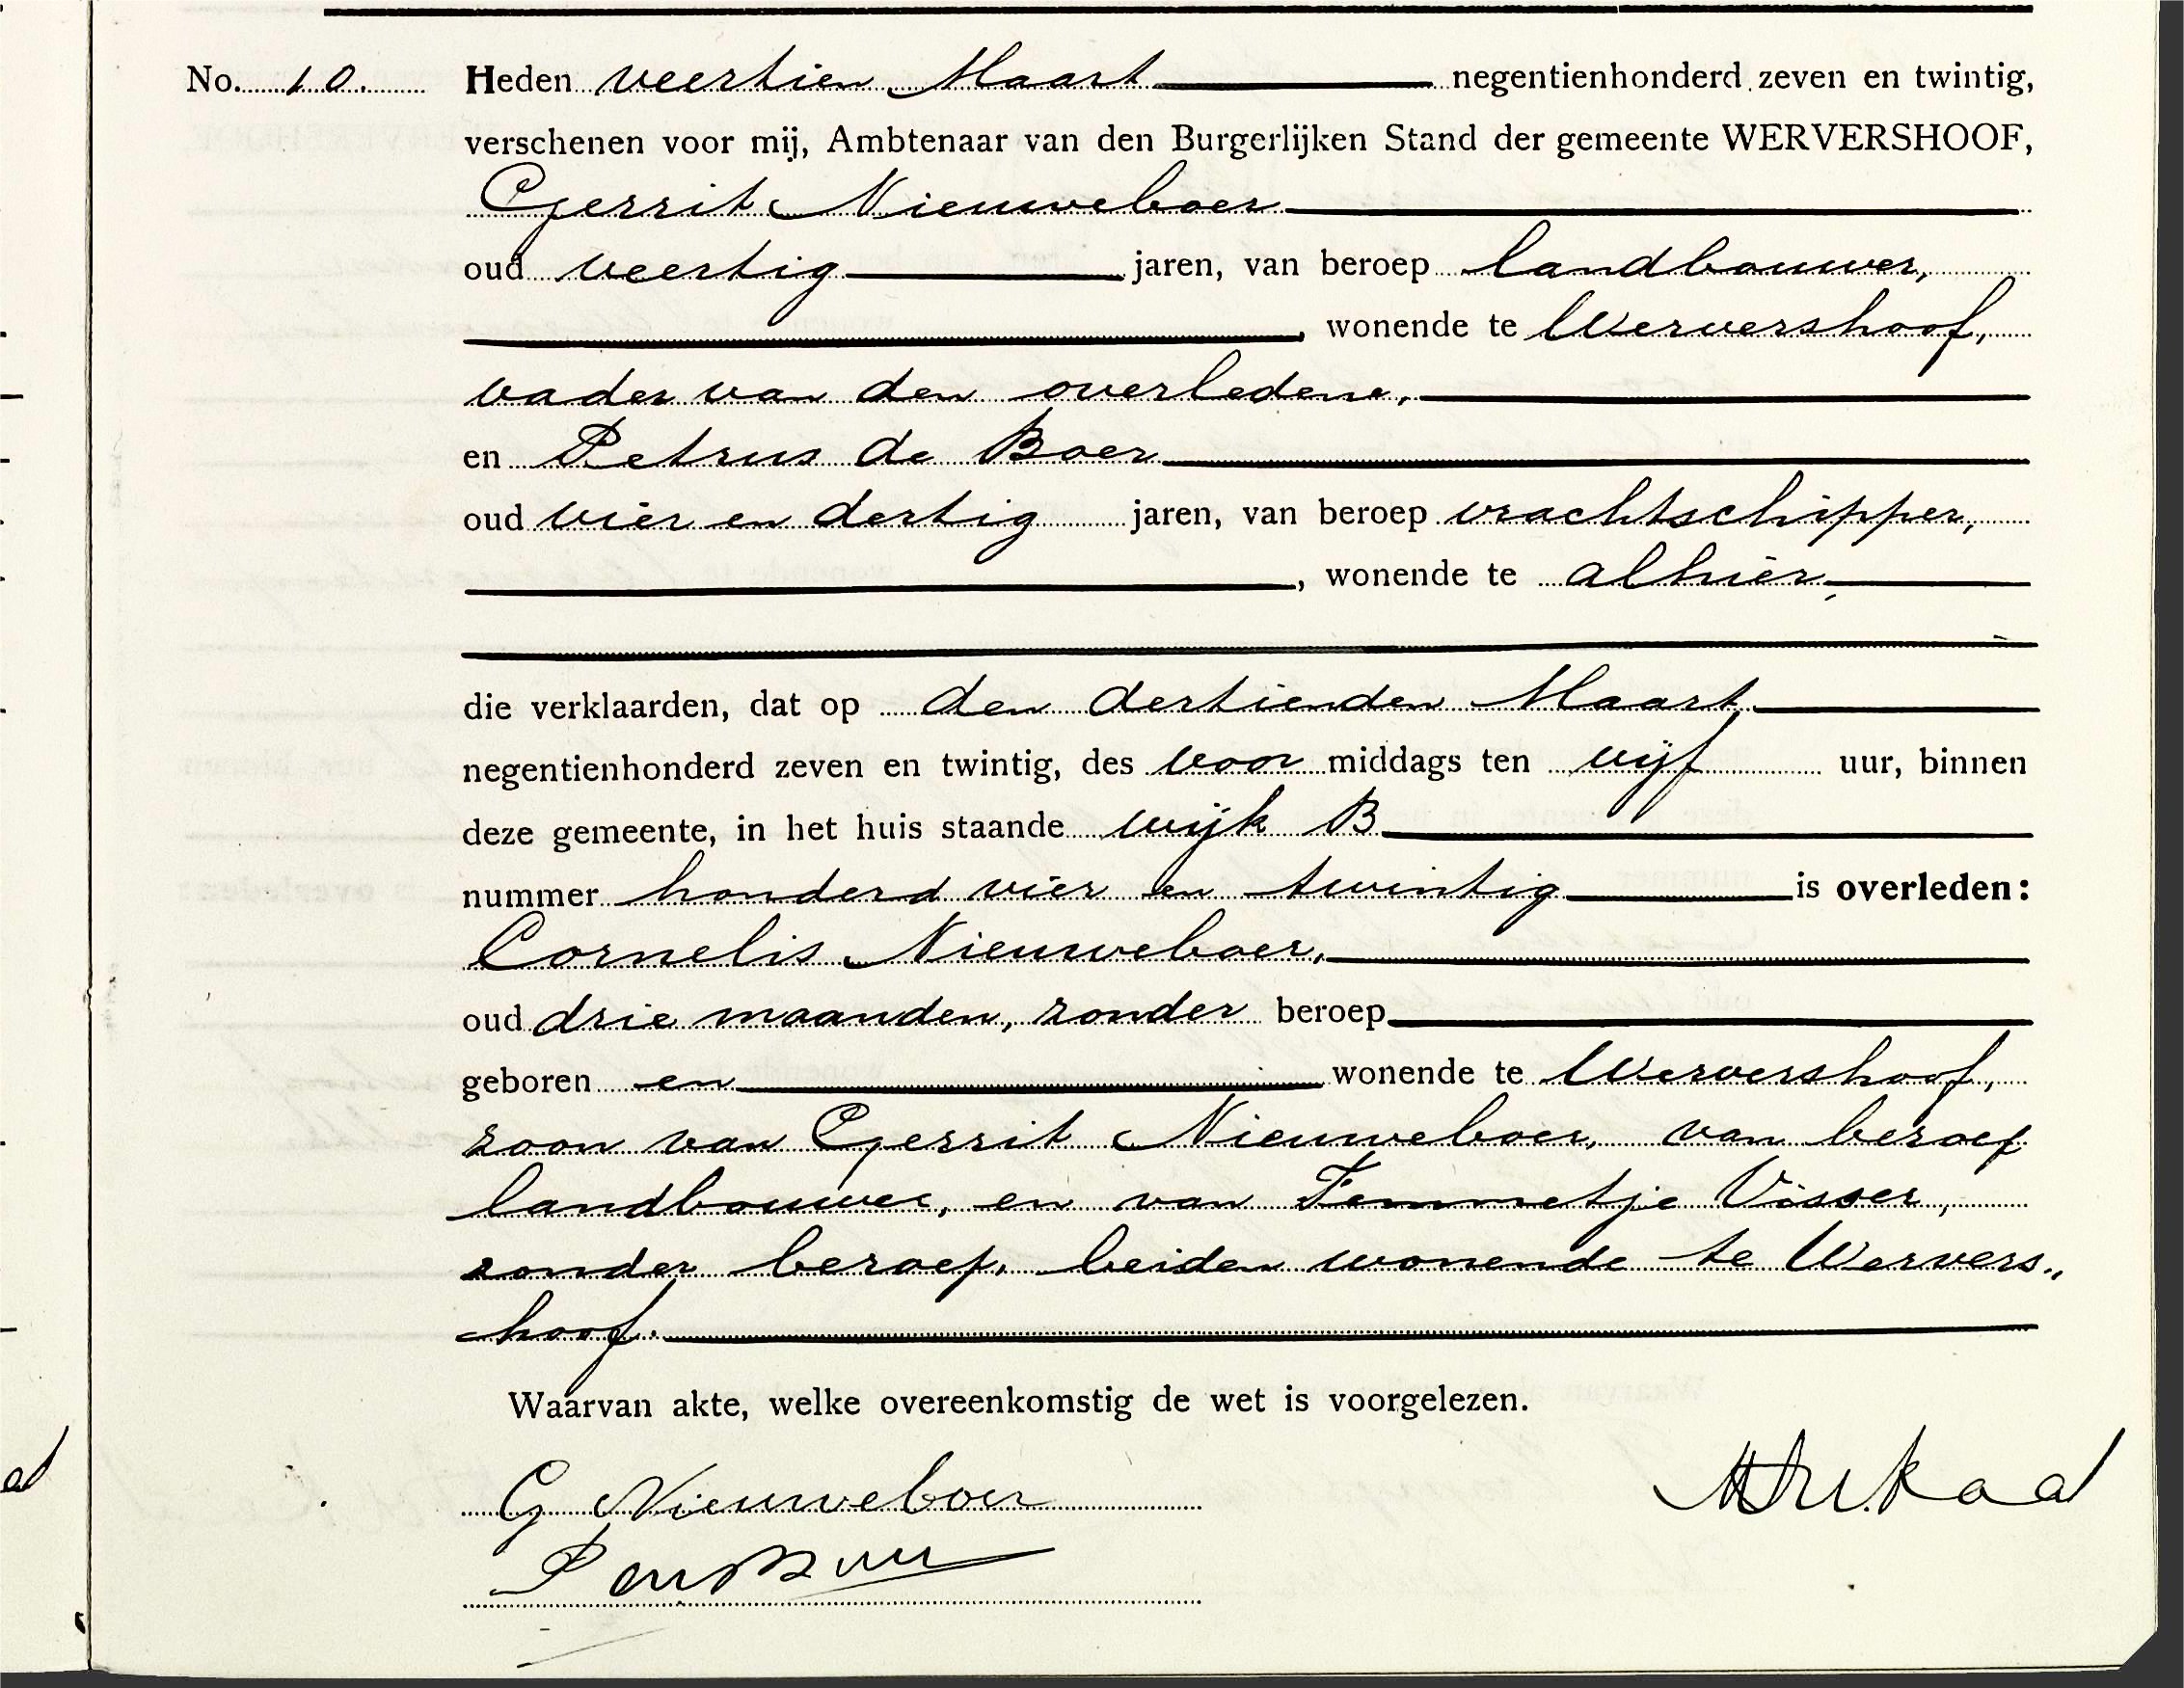 No. 10. Heden veertien Maart negentienhonderd zeven en twintig,
verschenen voor mij, Ambtenaar van den Burgerlijken Stand der gemeente WERVERSHOOF,
Gerrit Nieuweboer
oud veertig jaren, van beroep landbouwer,
, wonende te Wervershoof,
vader van den overledene,
en Petrus de Boer
oud vier en dertig jaren, van beroep vrachtschipper,
, wonende te alhier,
die verklaarden, dat op den dertienden Maart
negentienhonderd zeven en twintig, des voor middags ten vijf uur, binnen
deze gemeente, in het huis staande wijk B
nummer honderd vier en twintig is overleden:
Cornelis Nieuweboer,
oud drie maanden, zonder beroep
geboren en wonende te Wervershoof,
zoon van Gerrit Nieuweboer, van beroep
landbouwer, en van Femmetje Visser,
zonder beroep, beiden wonende te Wervers„
hoof.
Waarvan akte, welke overeenkomstig de wet is voorgelezen.
G Nieuweboer